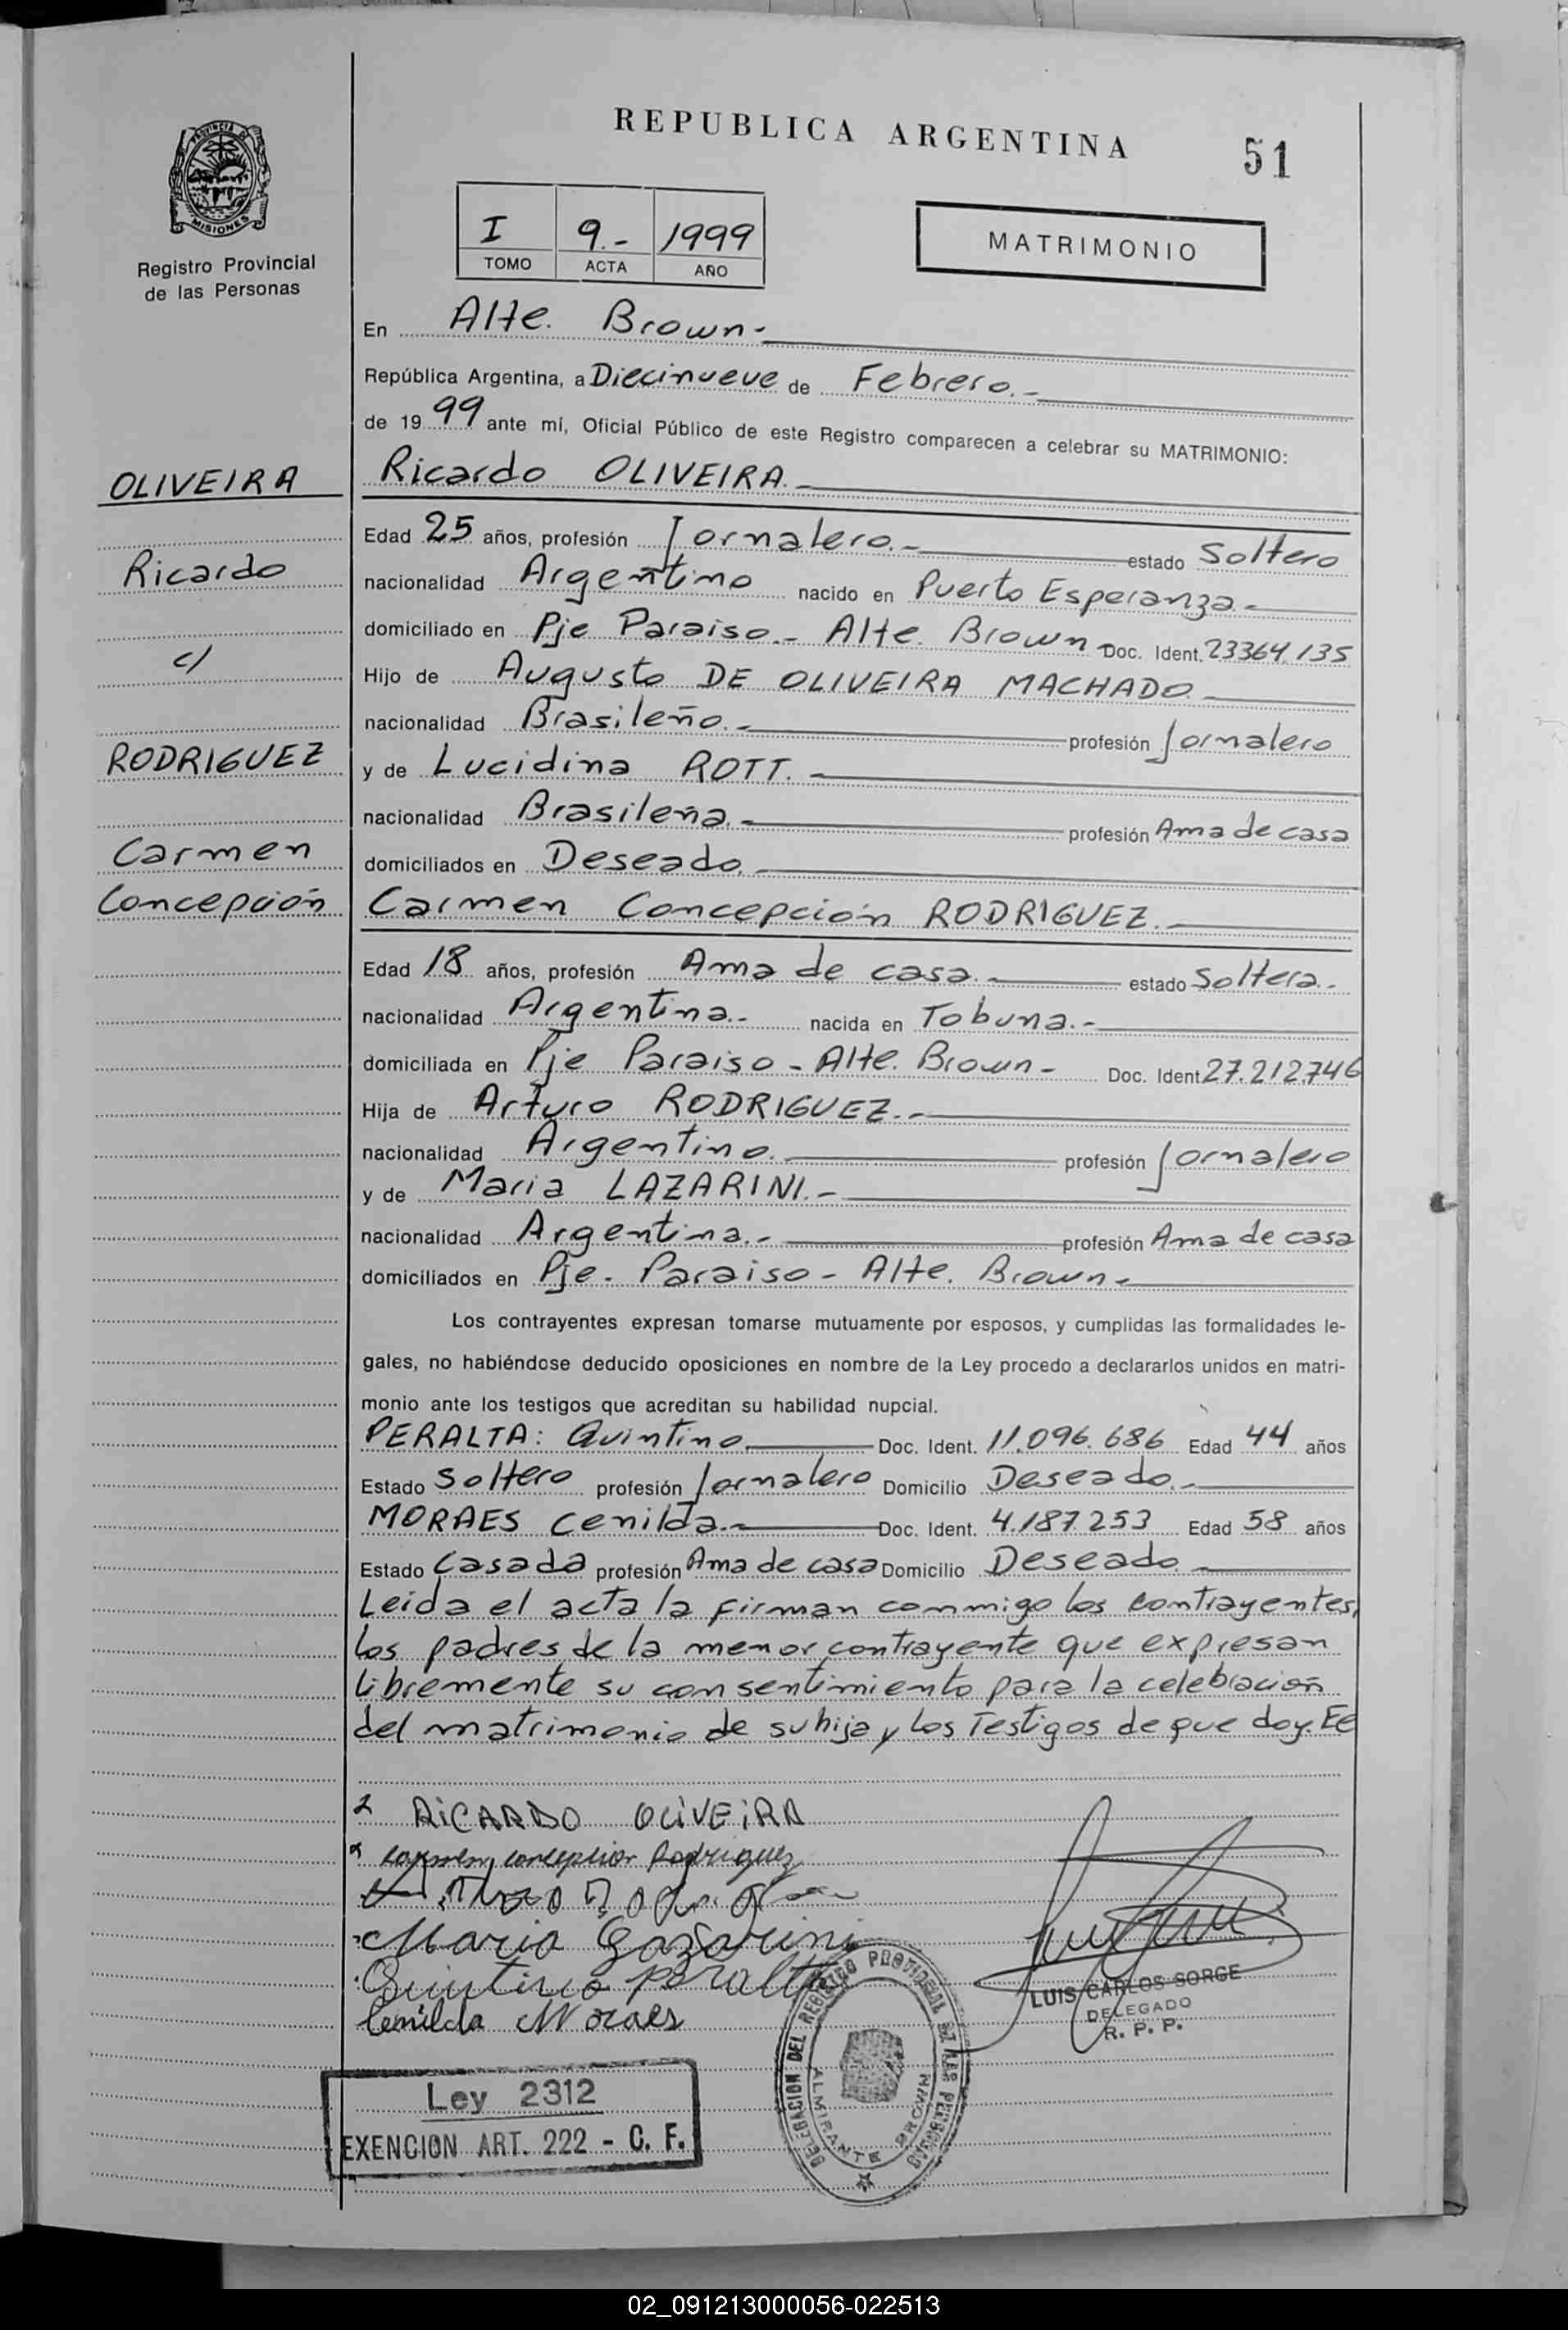 REPUBLICA ARGENTINA
51
PROVINCIA DE
MISIONES
Registro Provincial
de las Personas
I 9.- 1999
TOMO ACTA AÑO
MATRIMONIO
En Alte. Brown.-
República Argentina, a Diecinueve de Febrero.-
de 19 99 ante mí, Oficial Público de este Registro comparecen a celebrar su MATRIMONIO:
OLIVEIRA
Ricardo
c/
RODRIGUEZ
Carmen
Concepción
Ricardo OLIVEIRA.-
Edad 25 años, profesión Jornalero.- estado Soltero
nacionalidad Argentino nacido en Puerto Esperanza.-
domiciliado en Pje Paraiso.- Alte. Brown Doc. Ident. 23364.135
Hijo de Augusto DE OLIVEIRA MACHADO.
nacionalidad Brasileño.- profesión Jornalero
y de Lucidina ROTT.-
nacionalidad Brasileña.- profesión Ama de casa
domiciliados en Deseado.
Carmen Concepción RODRIGUEZ.-
Edad 18 años, profesión Ama de casa.- estado Soltera.-
nacionalidad Argentina.- nacida en Tobuna.-
domiciliada en Pje Paraiso - Alte. Brown.- Doc. Ident 27.212.746
Hija de Arturo RODRIGUEZ.-
nacionalidad Argentino. profesión Jornalero
y de Maria LAZARINI.-
nacionalidad Argentina.- profesión Ama de casa
domiciliados en Pje. Paraiso - Alte. Brown.-
Los contrayentes expresan tomarse mutuamente por esposos, y cumplidas las formalidades le-
gales, no habiéndose deducido oposiciones en nombre de la Ley procedo a declararlos unidos en matri-
monio ante los testigos que acreditan su habilidad nupcial.
PERALTA: Quintino Doc. Ident. 11.096.686 Edad 44 años
Estado Soltero profesión Jornalero Domicilio Deseado.-
MORAES Cenilda.- Doc. Ident. 4.187.253 Edad 58 años
Estado Casada profesión Ama de casa Domicilio Deseado.
Leida el acta la firman conmigo los contrayentes,
los padres de la menor contrayente que expresan
libremente su consentimiento para la celebración
del matrimonio de su hija y los Testigos de que doy. Fe
RiCARDO OLiVEiRA
Carmen concepcion Rodriguez
Maria Lazarini
Quintino Peralta
Cenilda Moraes
LUIS CARLOS SORGE
DELEGADO
R. P. P.
DELEGACION DEL REGISTRO PROVINCIAL DE LAS PERSONAS
ALMIRANTE BROWN
Ley 2312
EXENCION ART. 222 - C. F.
02_091213000056-022513